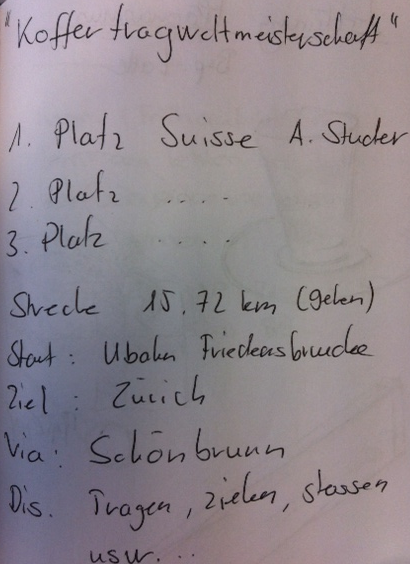 "Koffertragweltmeisterschaft"
1. Platz Suisse A. Studer
2. Platz ....
3. Platz ....
Strecke 15.72 km (gehen)
Start: Ubahn Friedensbruecke
Ziel : Zürich
Via: Schönbrunn
Dis. Tragen, ziehen, stossen
usw. ...